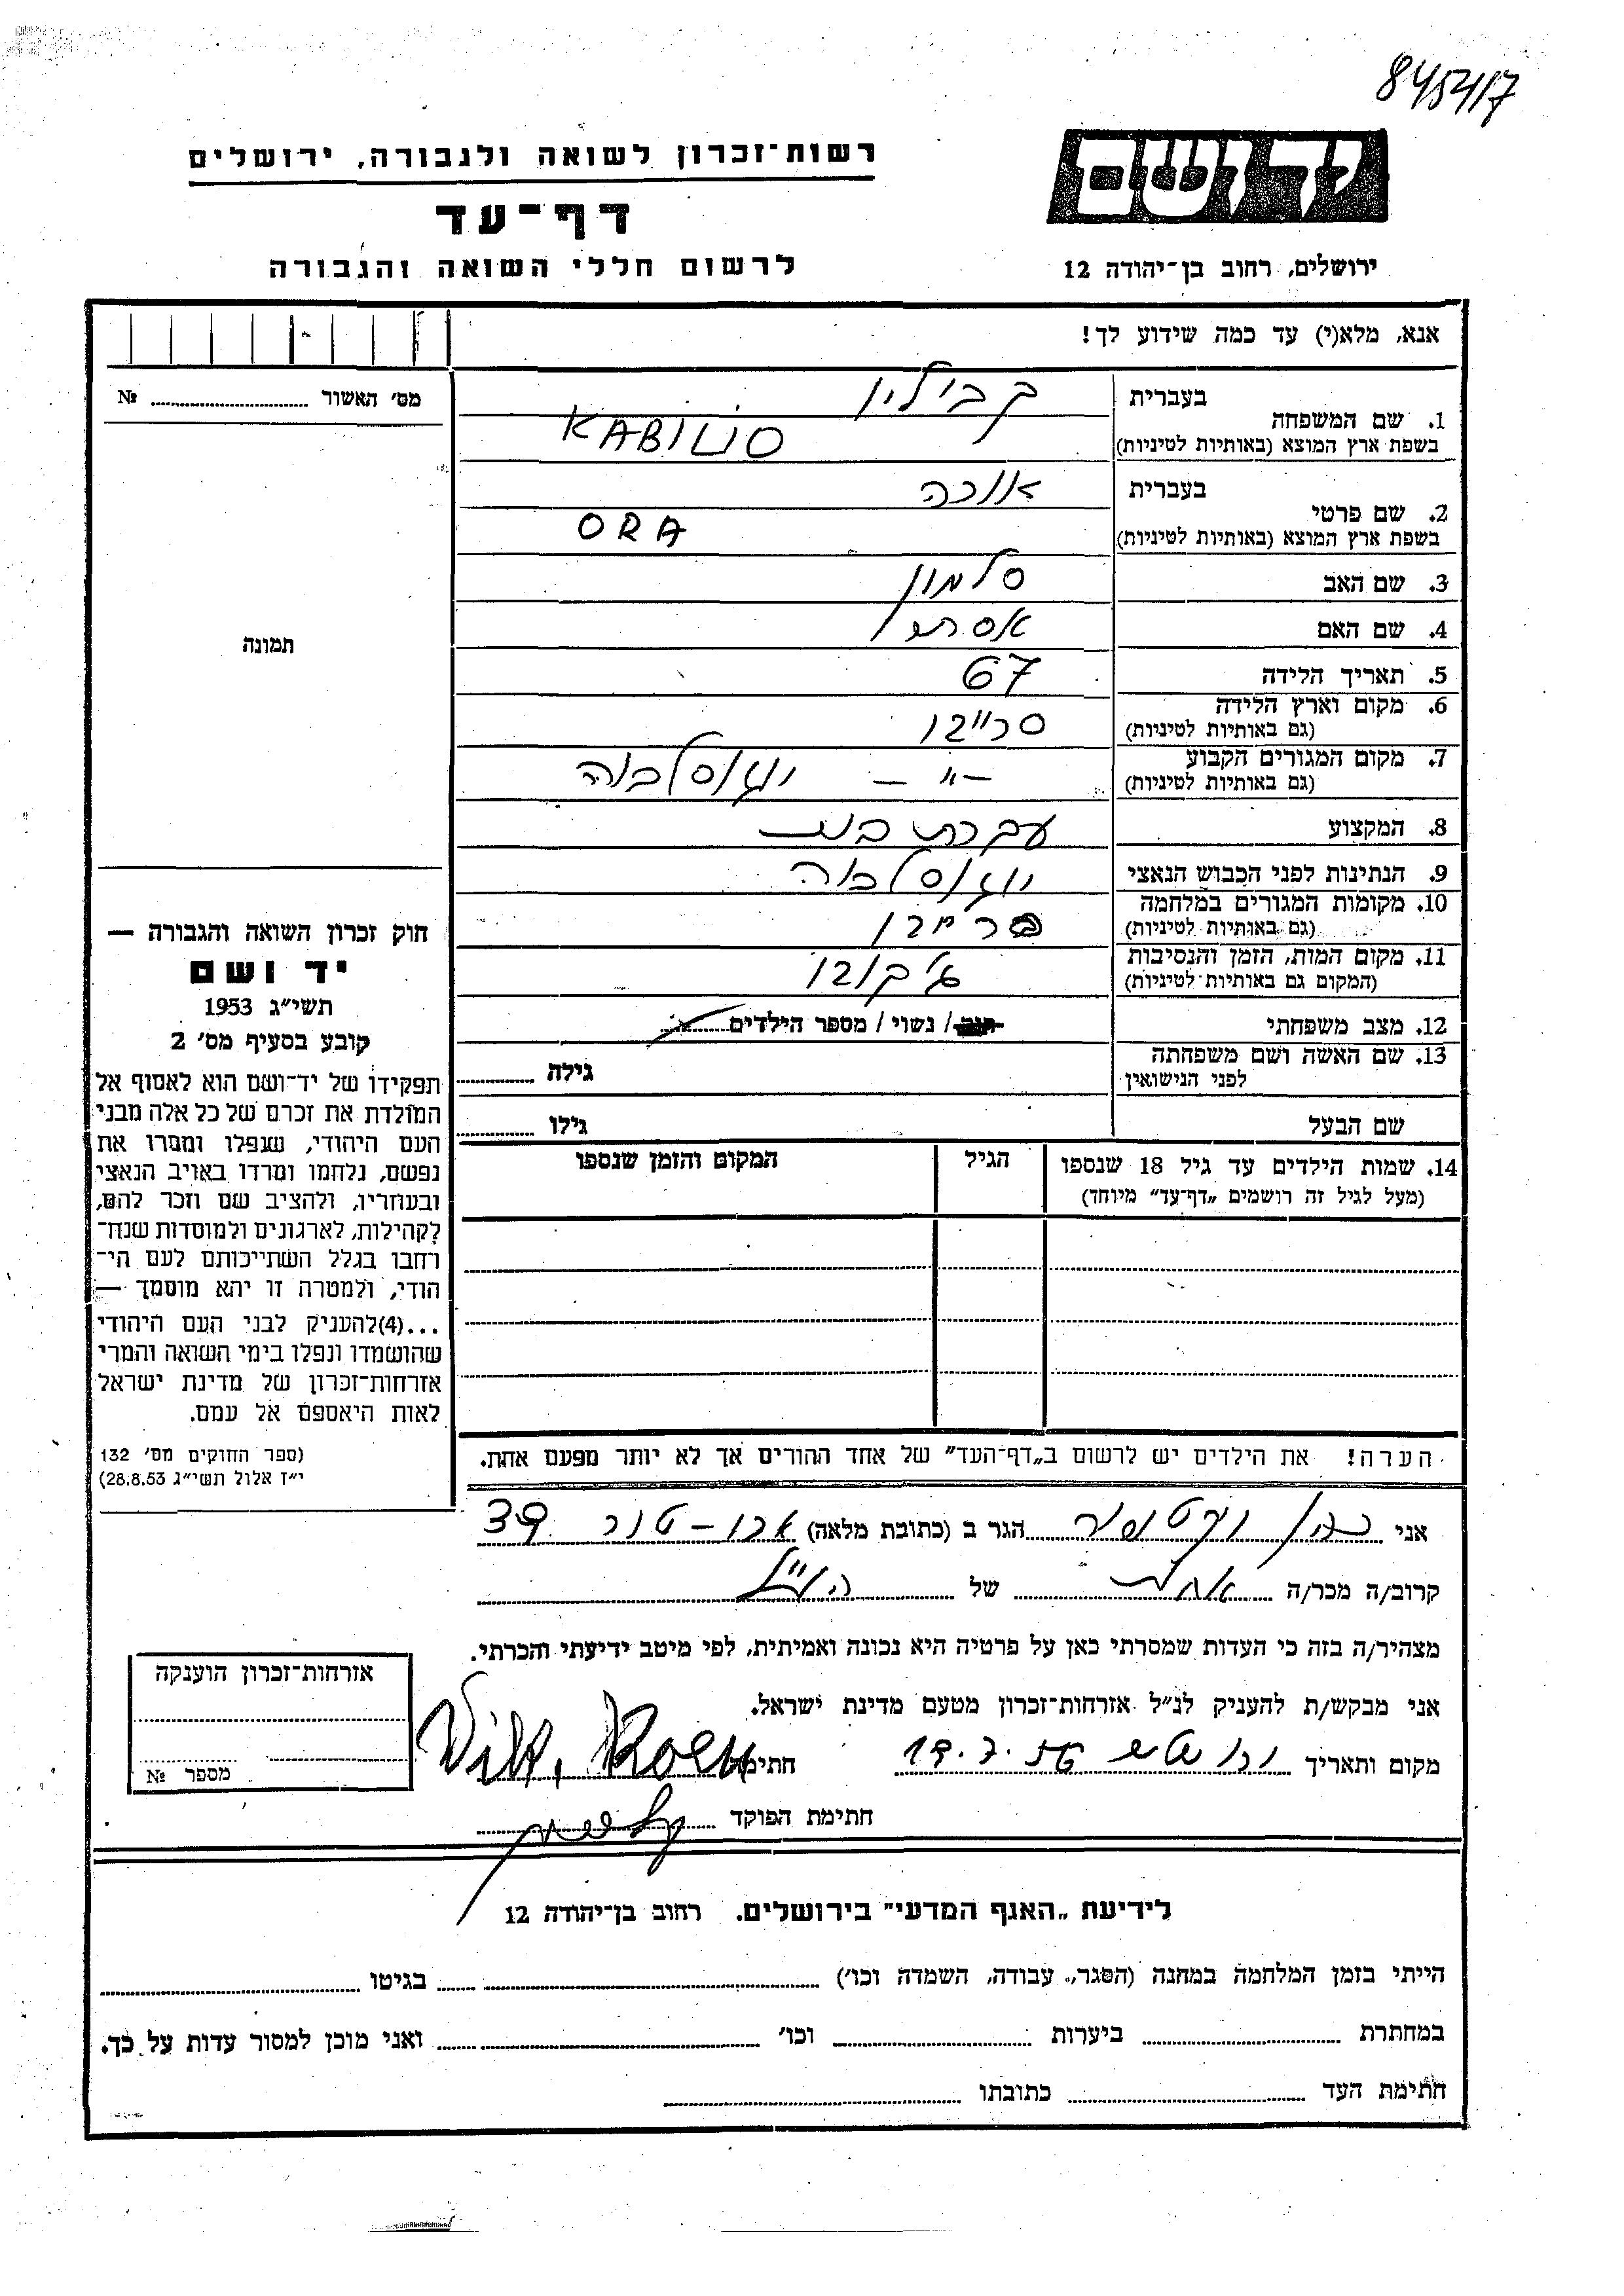 845417
רשות־זכרון לשואה ולגבורה, ירושלים
דף־עד
לרשום חללי השואה והגבורה
יד ושם
ירושלים, רחוב בן־יהודה 12
אנא, מלא(י) עד כמה שידוע לך!
מס׳ האשור № 
תמונה
1. שם המשפחה
בעברית קבילין
בשפת ארץ המוצא (באותיות לטיניות) KABILIO
2. שם פרטי
בעברית אורה
בשפת ארץ המוצא (באותיות לטיניות) ORA
3. שם האב סלמון
4. שם האם אסתר
5. תאריך הלידה 67
6. מקום וארץ הלידה סרייבו
(גם באותיות לטיניות)
7. מקום המגורים הקבוע –"– יוגוסלביה
(גם באותיות לטיניות)
8. המקצוע עקרת בית
9. הנתינות לפני הכבוש הנאצי יוגוסלביה
10. מקומות המגורים במלחמה
(גם באותיות לטיניות)
11. מקום המות, הזמן והנסיבות ג'קובו
(המקום גם באותיות לטיניות)
12. מצב משפחתי / נשוי / מספר הילדים
13. שם האשה ושם משפחתה
לפני הנישואין
גילה
שם הבעל גילו
14. שמות הילדים עד גיל 18 שנספו הגיל המקום והזמן שנספו
(מעל לגיל זה רושמים „דף־עד״ מיוחד)
הערה! את הילדים יש לרשום ב„דף־העד״ של אחד ההורים אך לא יותר מפעם אחת.
חוק זכרון השואה והגבורה —
יד ושם
תשי״ג 1953
קובע בסעיף מס׳ 2
תפקידו של יד־ושם הוא לאסוף אל
המולדת את זכרם של כל אלה מבני
העם היהודי, שנפלו ומסרו את
נפשם, נלחמו ומרדו באויב הנאצי
ובעוזריו, ולהציב שם וזכר להם,
לקהילות, לארגונים ולמוסדות שנח־
רבו בגלל השתייכותם לעם הי־
הודי, ולמטרה זו יהא מוסמך —
...(4)להעניק לבני העם היהודי
שהושמדו ונפלו בימי השואה והמרי
אזרחות־זכרון של מדינת ישראל
לאות היאספם אל עמם.
(ספר החוקים מס׳ 132
י״ז אלול תשי״ג 28.8.53)
אני כהן ויקטוריה הגר ב (כתובת מלאה) אבו-טור 39
קרוב/ה מכר/ה אחות של הנ"ל
מצהיר/ה בזה כי העדות שמסרתי כאן על פרטיה היא נכונה ואמיתית, לפי מיטב ידיעתי והכרתי.
אני מבקש/ת להעניק לנ״ל אזרחות־זכרון מטעם מדינת ישראל.
מקום ותאריך חתימה
חתימת הפוקד
אזרחות־זכרון הוענקה
מספר №
לידיעת „האגף המדעי״ בירושלים. רחוב בן־יהודה 12
הייתי בזמן המלחמה במחנה (הסגר, עבודה, השמדה וכו׳) בגיטו
במחתרת ביערות וכו׳ ואני מוכן למסור עדות על כך.
חתימת העד כתובתו